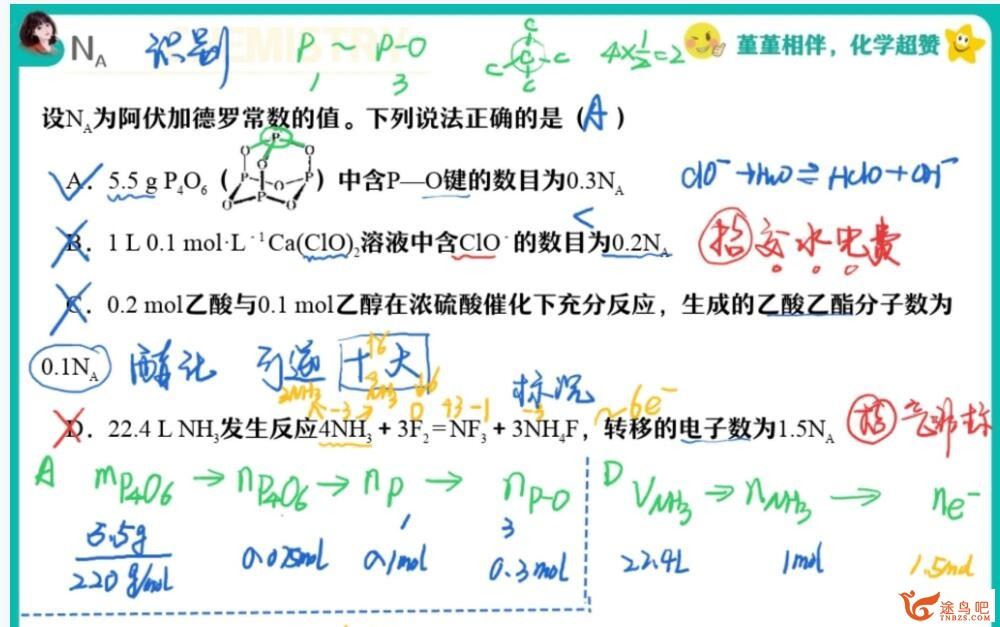 NA 识别 P ~ P-O 4×1/2=2 堇堇相伴，化学超赞
1 3
设NA为阿伏加德罗常数的值。下列说法正确的是（A）
A. 5.5 g P4O6（）中含P—O键的数目为0.3NA ClO⁻+H2O⇌HClO+OH⁻
<
B. 1 L 0.1 mol·L⁻¹Ca(ClO)2溶液中含ClO⁻的数目为0.2NA 水电费
C. 0.2 mol乙酸与0.1 mol乙醇在浓硫酸催化下充分反应，生成的乙酸乙酯分子数为
0.1NA 酯化 可逆 十大 标况
~6e⁻
D. 22.4 L NH3发生反应4NH3 + 3F2 = NF3 + 3NH4F，转移的电子数为1.5NA
A mP4O6 → nP4O6 → nP → nP-O D VNH3 → nNH3 → ne⁻
1 3
5.5g
220g/mol 0.025mol 0.1mol 0.3mol 22.4L 1mol 1.5mol
途鸟吧
TNBZS.COM